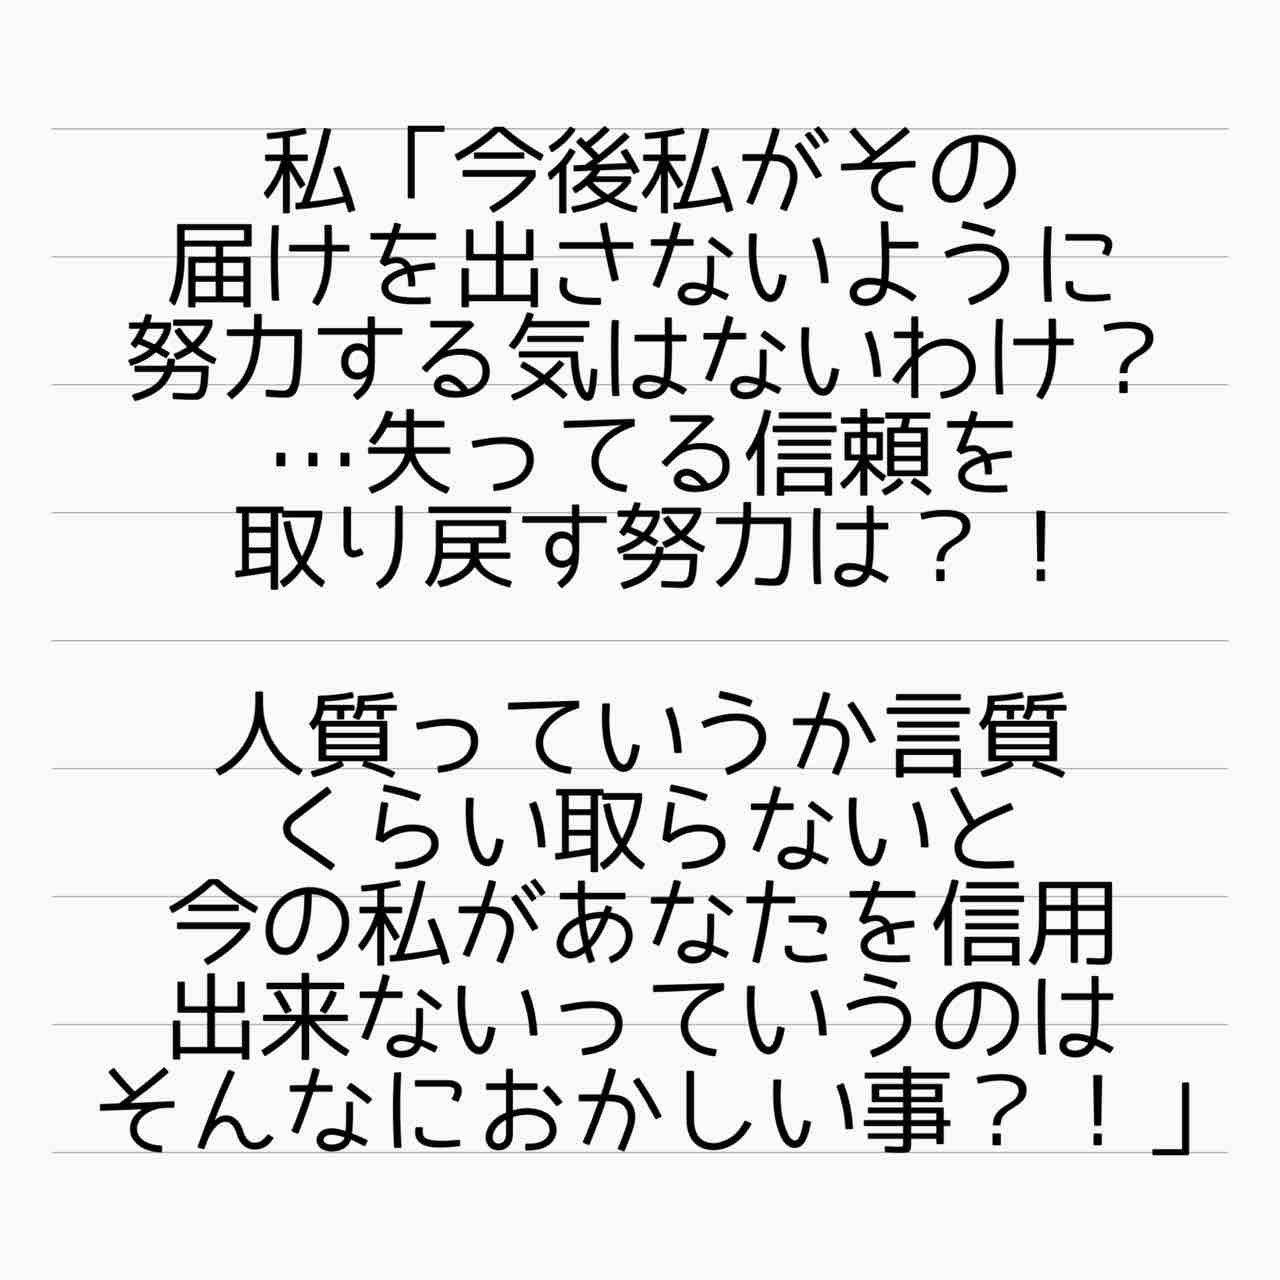 私「今後私がその
届けを出さないように
努力する気はないわけ？
…失ってる信頼を
取り戻す努力は？！
人質っていうか言質
くらい取らないと
今の私があなたを信用
出来ないっていうのは
そんなにおかしい事？！」